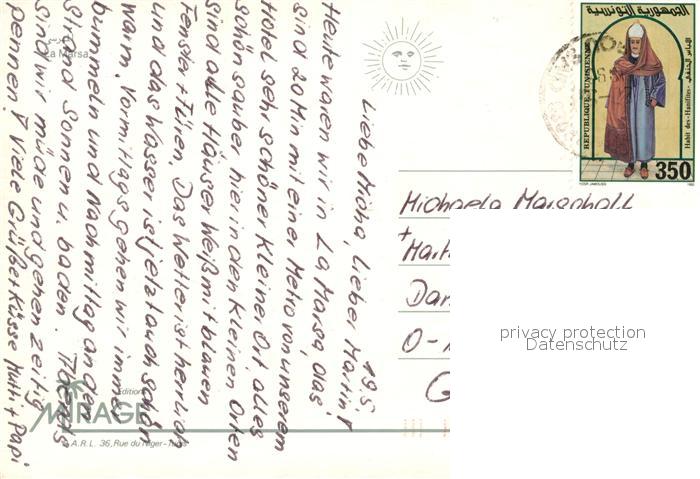 19.5.
Liebe Micha, Lieber Martin!
Heute waren wir in La Marsa, das
sind 20 Min mit einer Metro von unserem
Hotel sehr schöner kleine Ort, alles
schön sauber, hier in den kleinen Orten
sind alle Häuser weiß mit blauen
Fenster + Türen. Das Wetter ist herrlich
und das Wasser ist jetzt auch schön
warm. Vormittags gehen wir immer
bummeln und Nachmittag an den
Strand Sonnen u. baden. Abends
sind wir müde und gehen zeitig
pennen. Viele Grüße + Küsse Mutti + Papi
La Marsa
Editions
MIRAGE
S.A.R.L. 36, Rue du Niger - Tunis
الجمهورية التونسية
REPUBLIQUE TUNISIENNE
Habit des "Hanifites"
350
Michaela
+
Dar
O-
G
privacy protection
Datenschutz